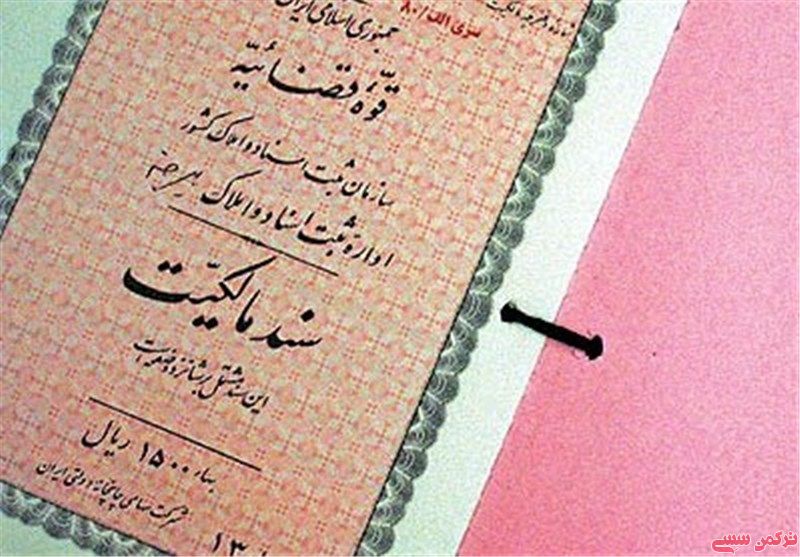 سری الف/۸۰
جمهوری اسلامی ایران
قوّهٔ قضائیّه
سازمان ثبت اسناد و املاک کشور
ادارهٔ ثبت اسناد و املاک
سند مالکیّت
این سند مشتمل بر شانزده صفحه است
بهاء ۱۵۰۰ ریال
شرکت سهامی چاپخانه دولتی ایران
۱۳
ترکمن سسی